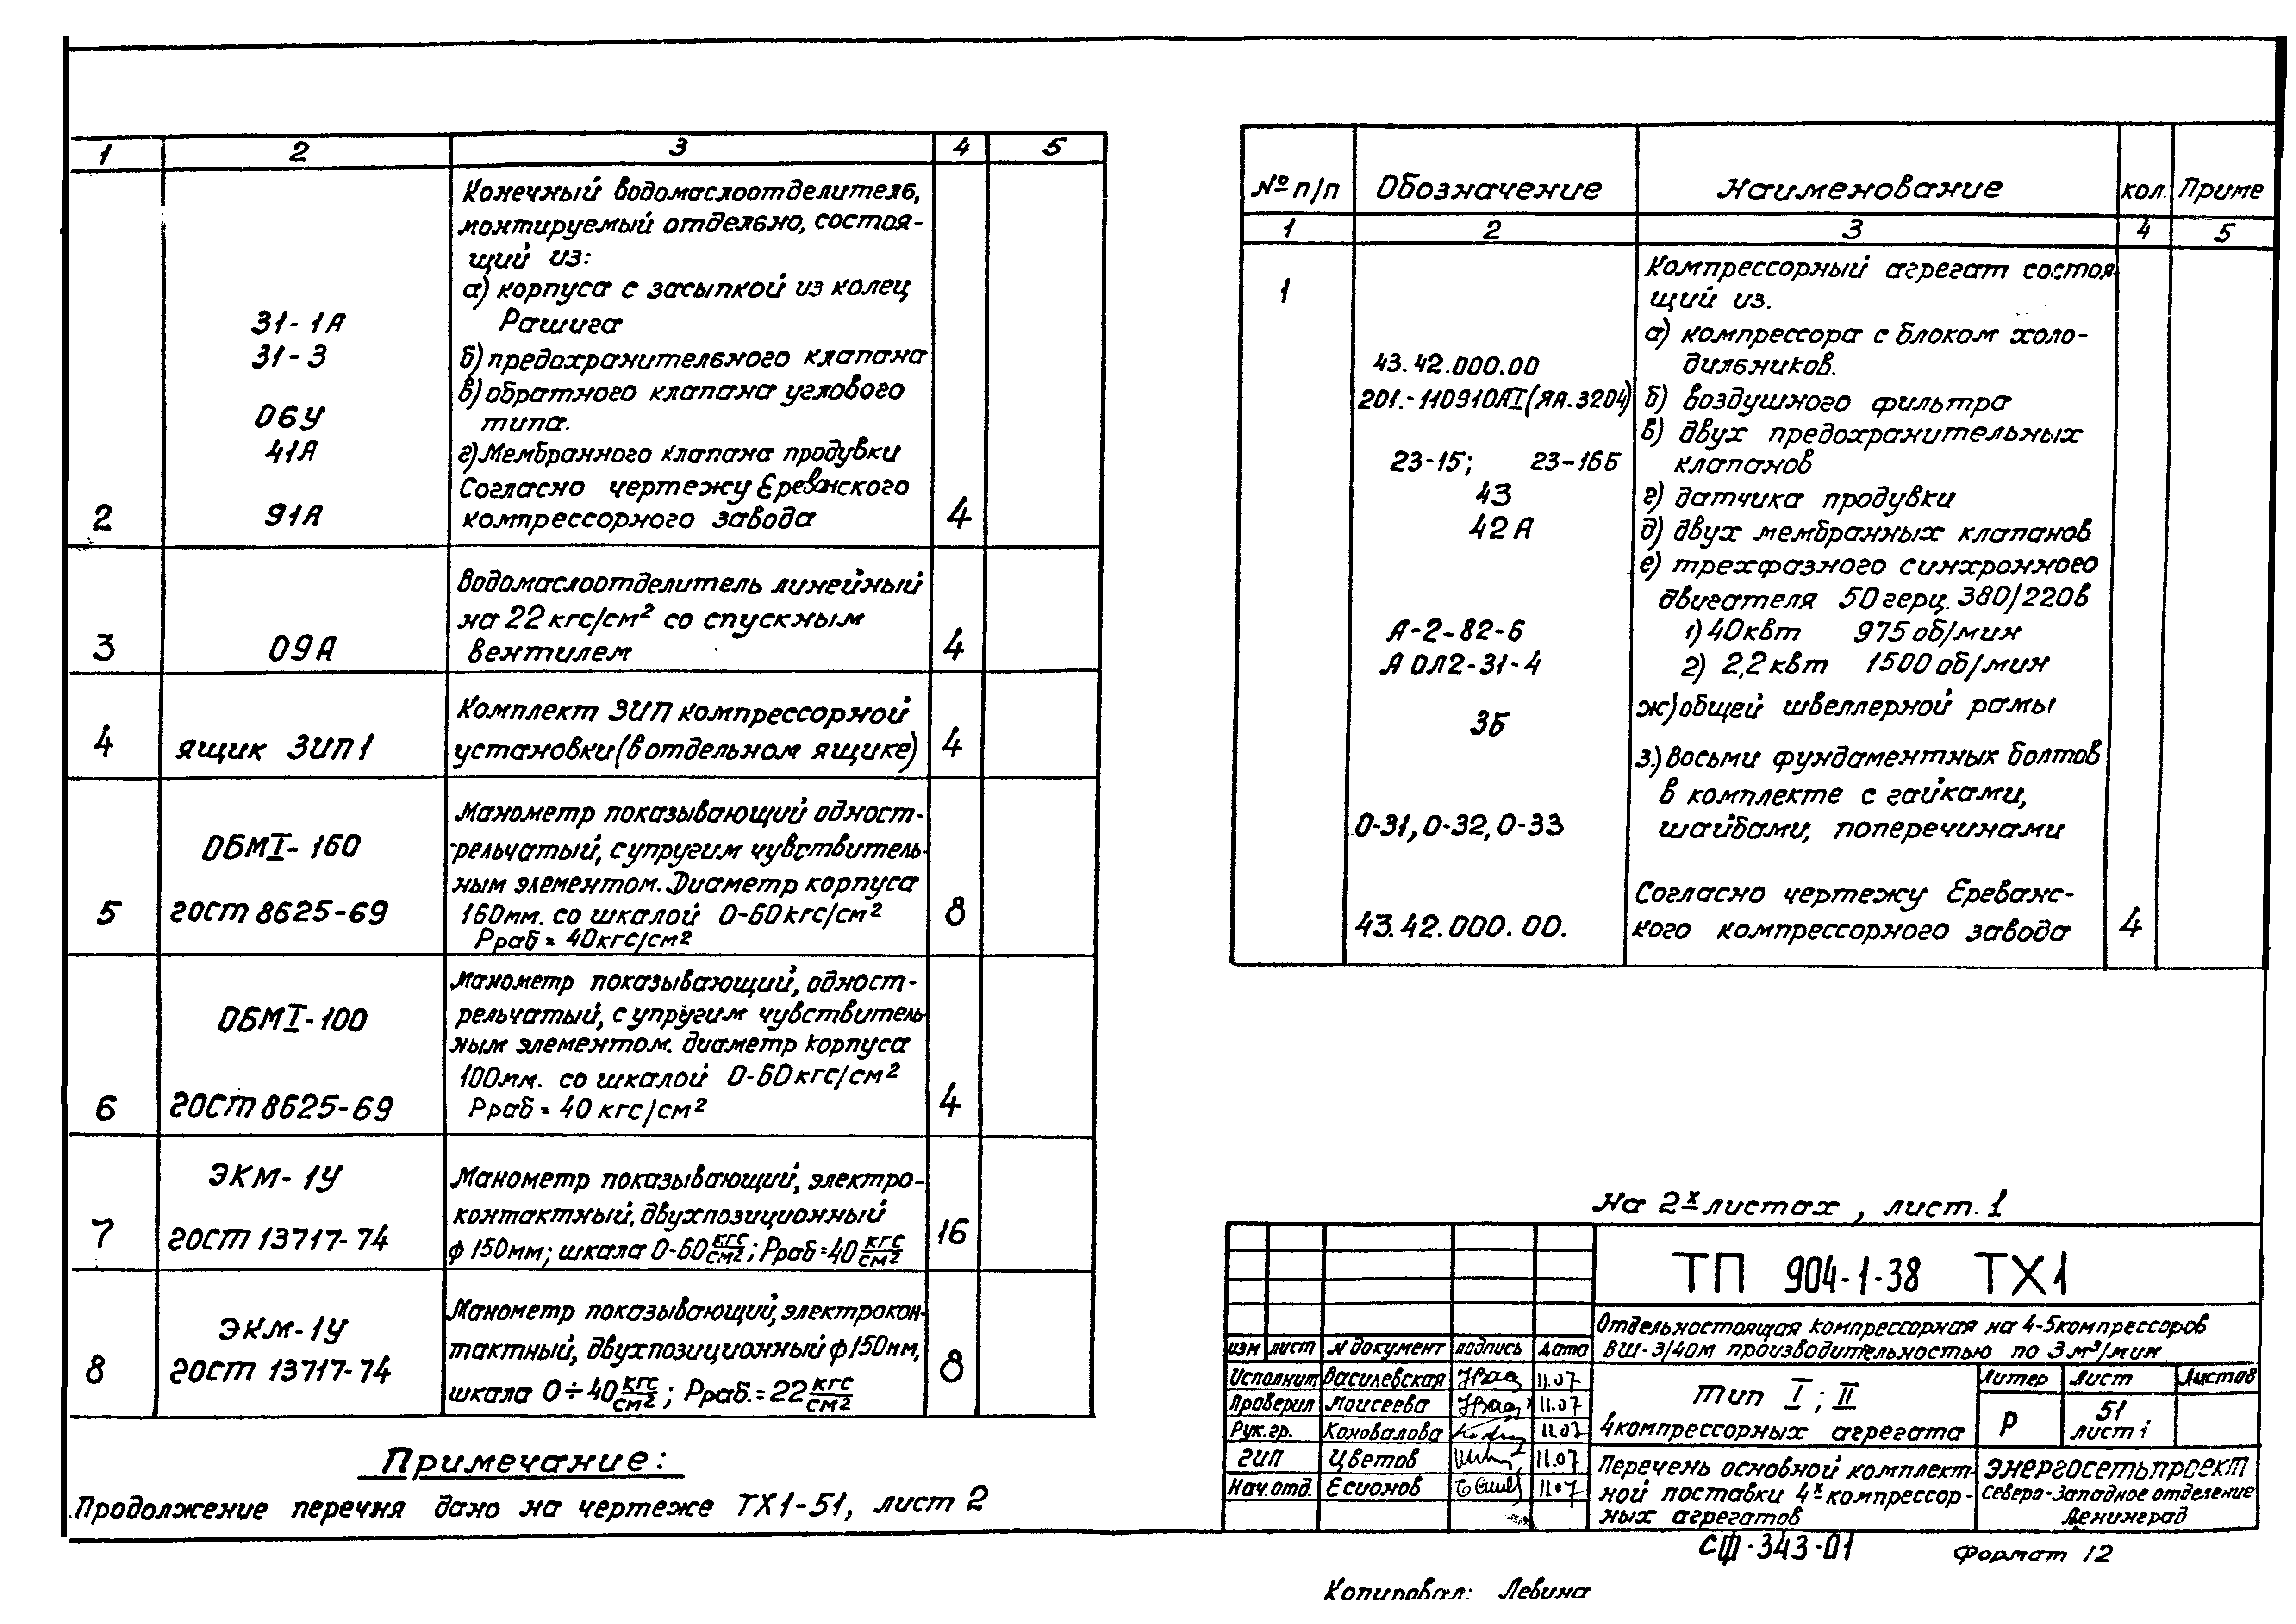 1 2 3 4 5
Конечный водомаслоотделитель,
монтируемый отдельно, состоя-
щий из:
а) корпуса с засыпкой из колец
31-1А Рашига
31-3 б) предохранительного клапана
в) обратного клапана углового
06У типа.
41А г) Мембранного клапана продувки
Согласно чертежу Ереванского
2 91А компрессорного завода 4
водомаслоотделитель линейный
на 22 кгс/см² со спускным
3 09А вентилем 4
Комплект ЗИП компрессорной
4 ящик ЗИП1 установки (в отдельном ящике) 4
Манометр показывающий одност-
ОБМI-160 рельчатый, с упругим чувствитель-
ным элементом. Диаметр корпуса
5 ГОСТ 8625-69 160мм. со шкалой 0-60кгс/см² 8
Рраб = 40кгс/см²
Манометр показывающий, одност-
ОБМI-100 рельчатый, с упругим чувствитель
ным элементом. диаметр корпуса
100мм. со шкалой 0-60кгс/см²
6 ГОСТ 8625-69 Рраб = 40 кгс/см² 4
ЭКМ-1У Манометр показывающий, электро-
контактный, двухпозиционный
7 ГОСТ 13717-74 ф 150мм; шкала 0-60 кгс/см²; Рраб=40 кгс/см² 16
Манометр показывающий, электрокон-
ЭКМ-1У тактный, двухпозиционный ф150мм,
8 ГОСТ 13717-74 шкала 0÷40 кгс/см²; Рраб.=22 кгс/см² 8
Примечание:
Продолжение перечня дано на чертеже ТХ1-51, лист 2
№ п/п Обозначение Наименование кол. Приме
1 2 3 4 5
Компрессорный агрегат состоя
1 щий из.
а) компрессора с блоком холо-
43.42.000.00 дильников.
201.-110910АI (ЯА.3204) б) воздушного фильтра
в) двух предохранительных
23-15; 23-16Б клапанов
43 г) датчика продувки
42А д) двух мембранных клапанов
е) трехфазного синхронного
двигателя 50герц. 380/220в
А-2-82-6 1) 40квт 975об/мин
АОЛ2-31-4 2) 2,2квт 1500об/мин
3Б ж) общей швеллерной рамы
з.) восьми фундаментных болтов
в комплекте с гайками,
0-31, 0-32, 0-33 шайбами, поперечинами
Согласно чертежу Ереванс-
43.42.000.00. кого компрессорного завода 4
на 2х листах, лист. 1
ТП 904-1-38 ТХ1
Отдельностоящая компрессорная на 4-5компрессоров
ВШ-3/40м производительностью по 3м³/мин
изм лист N документ подпись дата
Исполнит Василевская 11.07
Проверил Моисеева 11.07
Рук.гр. Коновалова 11.07
ГИП Цветов 11.07
Нач.отд. Есионов 11.07
тип I; II
4компрессорных агрегата
Литер Лист Листов
Р 51
лист 1
Перечень основной комплект-
ной поставки 4х компрессор-
ных агрегатов
ЭНЕРГОСЕТЬПРОЕКТ
Северо-Западное отделение
Ленинград
СФ-343-01 Формат 12
Копировал: Левина